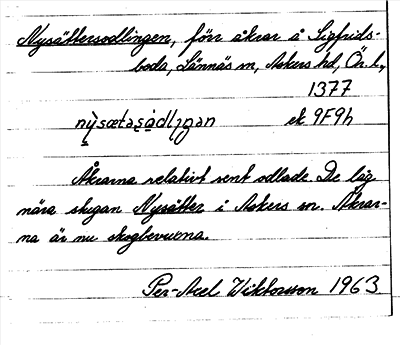 Nysättersodlingen, förr åkrar å Sigfrids-
boda, Lännäs sn, Askers hd, Ör. l.,
1377
ek 9F9h
Åkrarna relativt sent odlade. De låg
nära stugan Nysätter i Askers sn. Åkrar-
na är nu skogbevuxna.
Per-Axel Wiktorsson 1963